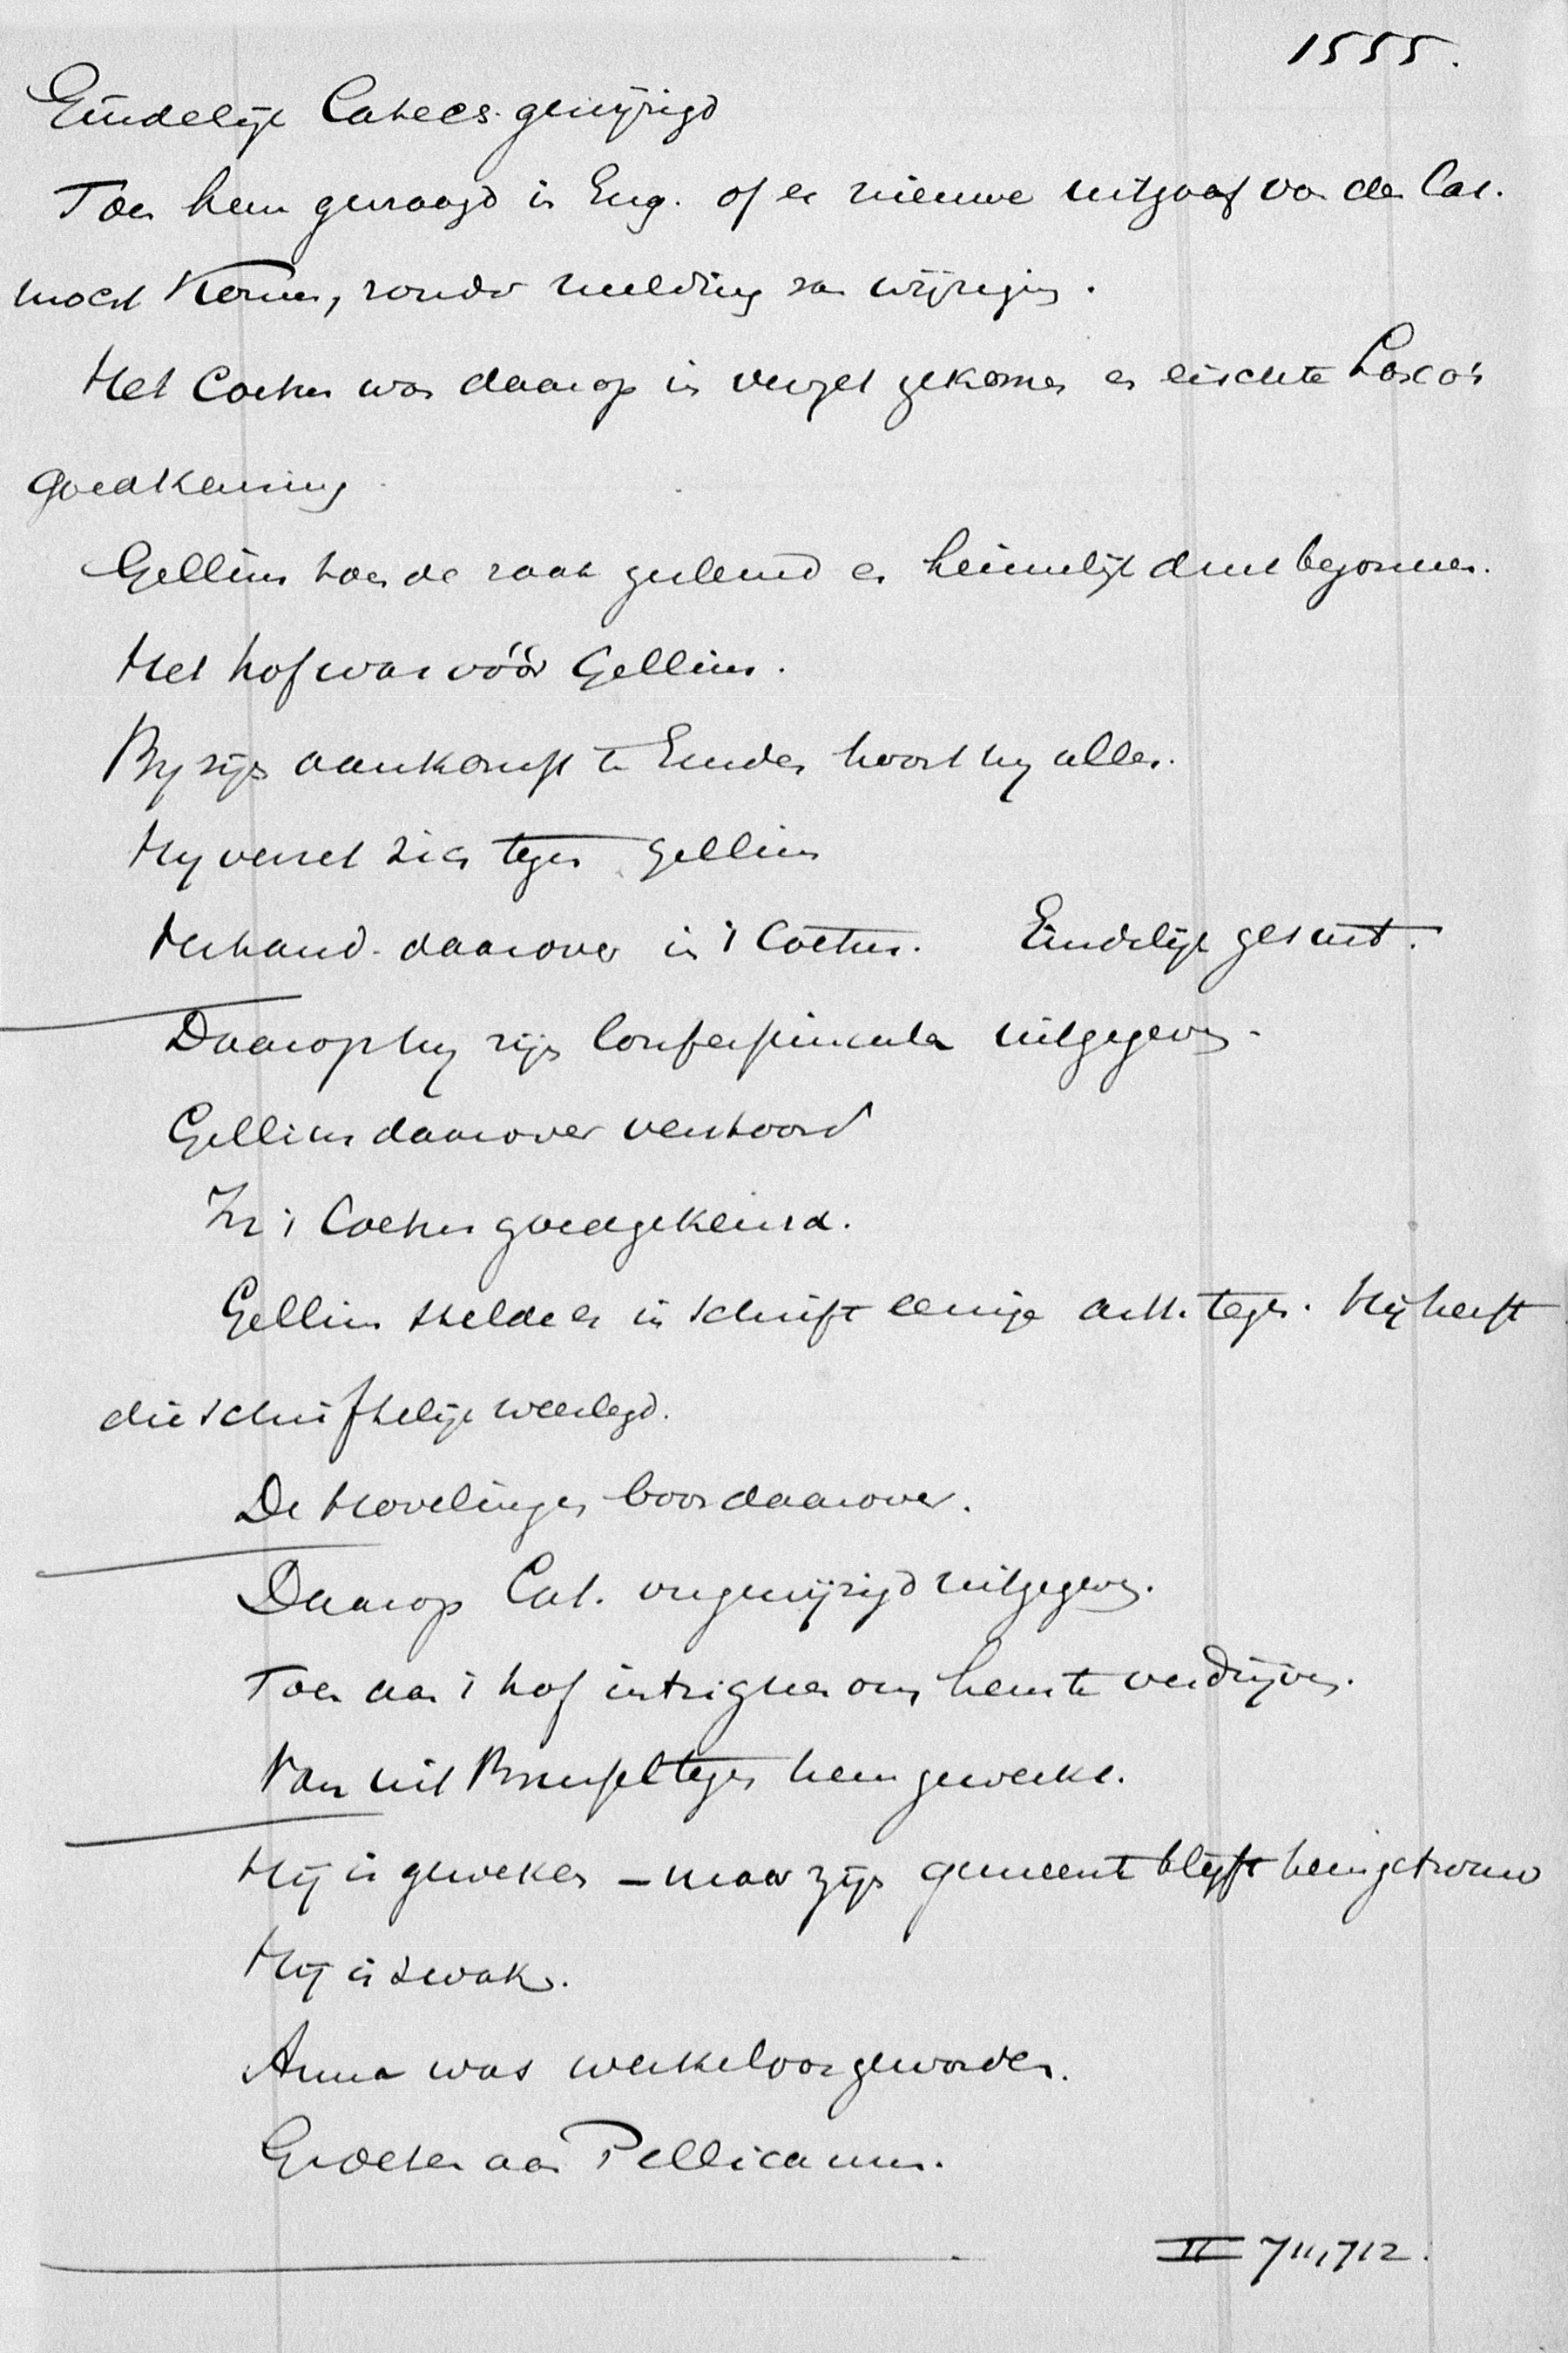 1555.
Eindelijk Catees. gewijzigd
Toen hem gevraagd in Eng. of er nieuwe uitgaaf van den Cat.
moest komen, zonder melding van wijziging.
Het Coetus was daarop in verzet gekomen en eischte Lasco's
goedkeuring
Gellius toen de zaak geleund en heimelijk druk begonnen.
Het hof was vóór Gellius.
By zijn aankomst te Emden hoort hy alles.
Hy verzet zich tegen Gellius
Verhand. daarover in 't Coetus. Eindelijk gesust.
Daarop hy zijn Confessiuncula uitgegeven.
Gellius daarover verstoord
In 't Coetus goedgekeurd.
Gellius stelde er in schrift eenige artt. tegen. Hij heeft
die schriftelijk weerlegd.
De Hovelingen boos daarover.
Daarop Cat. ongewijzigd uitgegeven.
Toen aan 't hof intrigues om hem te verdrijven.
Van uit Brussel tegen hem gewerkt.
Hij is geweken – maar zijn gemeente blijft hem getrouw
Hij is zwak.
Anna was werkeloos geworden.
Groeten aan Pellicanus.
II 711, 712.